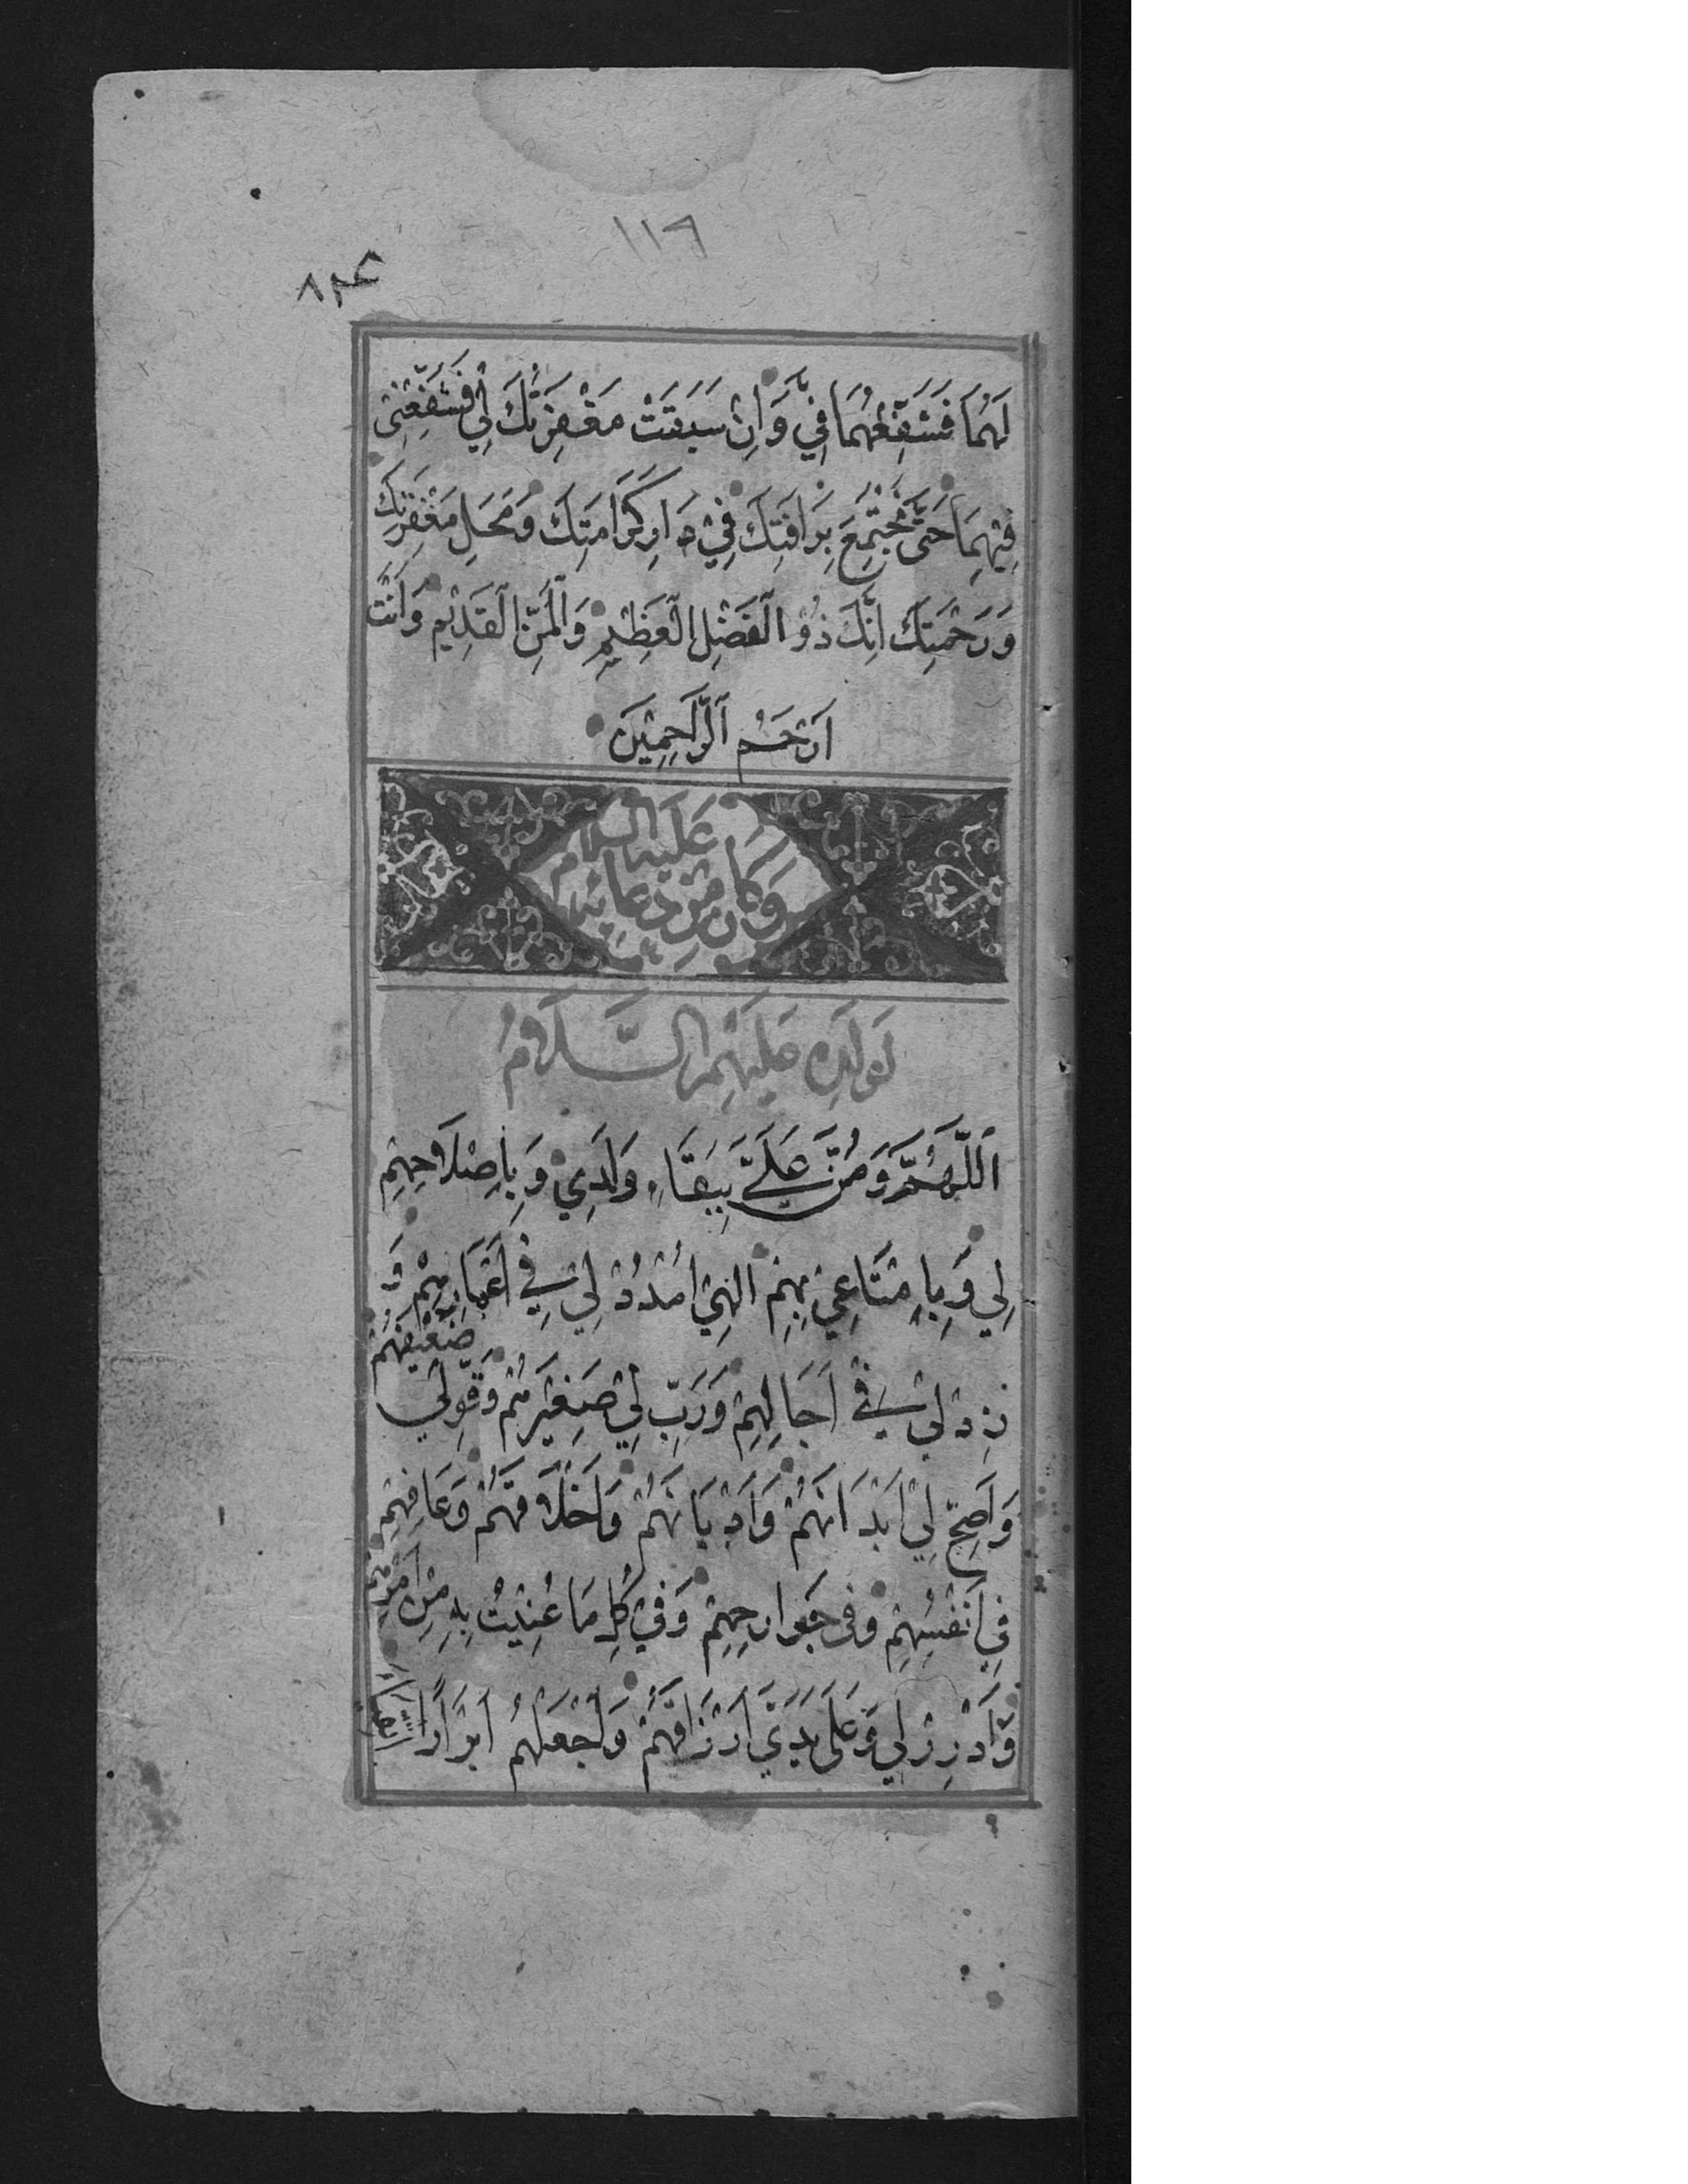 ١١٦
لَهُمَا فَشَفِّعْهُمَا فِيَّ وَاِنْ سَبَقَتْ مَغْفِرَتُكَ لِي فَشَفِّعْنِي
فِيْهِمَا حَتّٰى نَجْتَمِعَ بِرَافَتِكَ فِيْ دَارِ كَرَامَتِكَ وَمَحَلِ مَغْفِرَتِكَ
وَرَحْمَتِكَ اِنَّكَ ذُو الْفَضْلِ الْعَظِيْمِ وَالْمَنِّ الْقَدِيْمِ وَاَنْتَ
اَرْحَمُ الرَّاحِمِيْنَ
وَكَانَ مِنْ دُعَائِهِ
عَلَيْهِ السَّلَام
لِوَلَدِهِ عَلَيْهِمُ السَّلَامُ
اَللّٰهُمَّ وَمُنَّ عَلَيَّ بِبَقَاءِ وَلَدِيْ وَبِاِصْلَاحِهِمْ
لِي وَبِاِمْتَاعِيْ بِهِمْ اِلٰهِيْ امْدُدْ لِيْ فِيْ اَعْمَارِهِمْ وَ
زِدْ لِيْ فِيْ اٰجَالِهِمْ وَرَبِّ لِيْ صَغِيْرَهُمْ وَقَوِّ لِيْ
ضَعِيْفَهُمْ
وَاَصِحَّ لِيْ اَبْدَانَهُمْ وَاَدْيَانَهُمْ وَاَخْلَاقَهُمْ وَعَافِهِمْ
فِي اَنْفُسِهِمْ وَفِي جَوَارِحِهِمْ وَفِيْ كُلِّ مَا عُنِيْتُ بِهِ مِنْ اَمْرِهِمْ
وَاَدْرِرْ لِي وَعَلٰى يَدَيَّ اَرْزَاقَهُمْ وَاجْعَلْهُمْ اَبْرَارًا